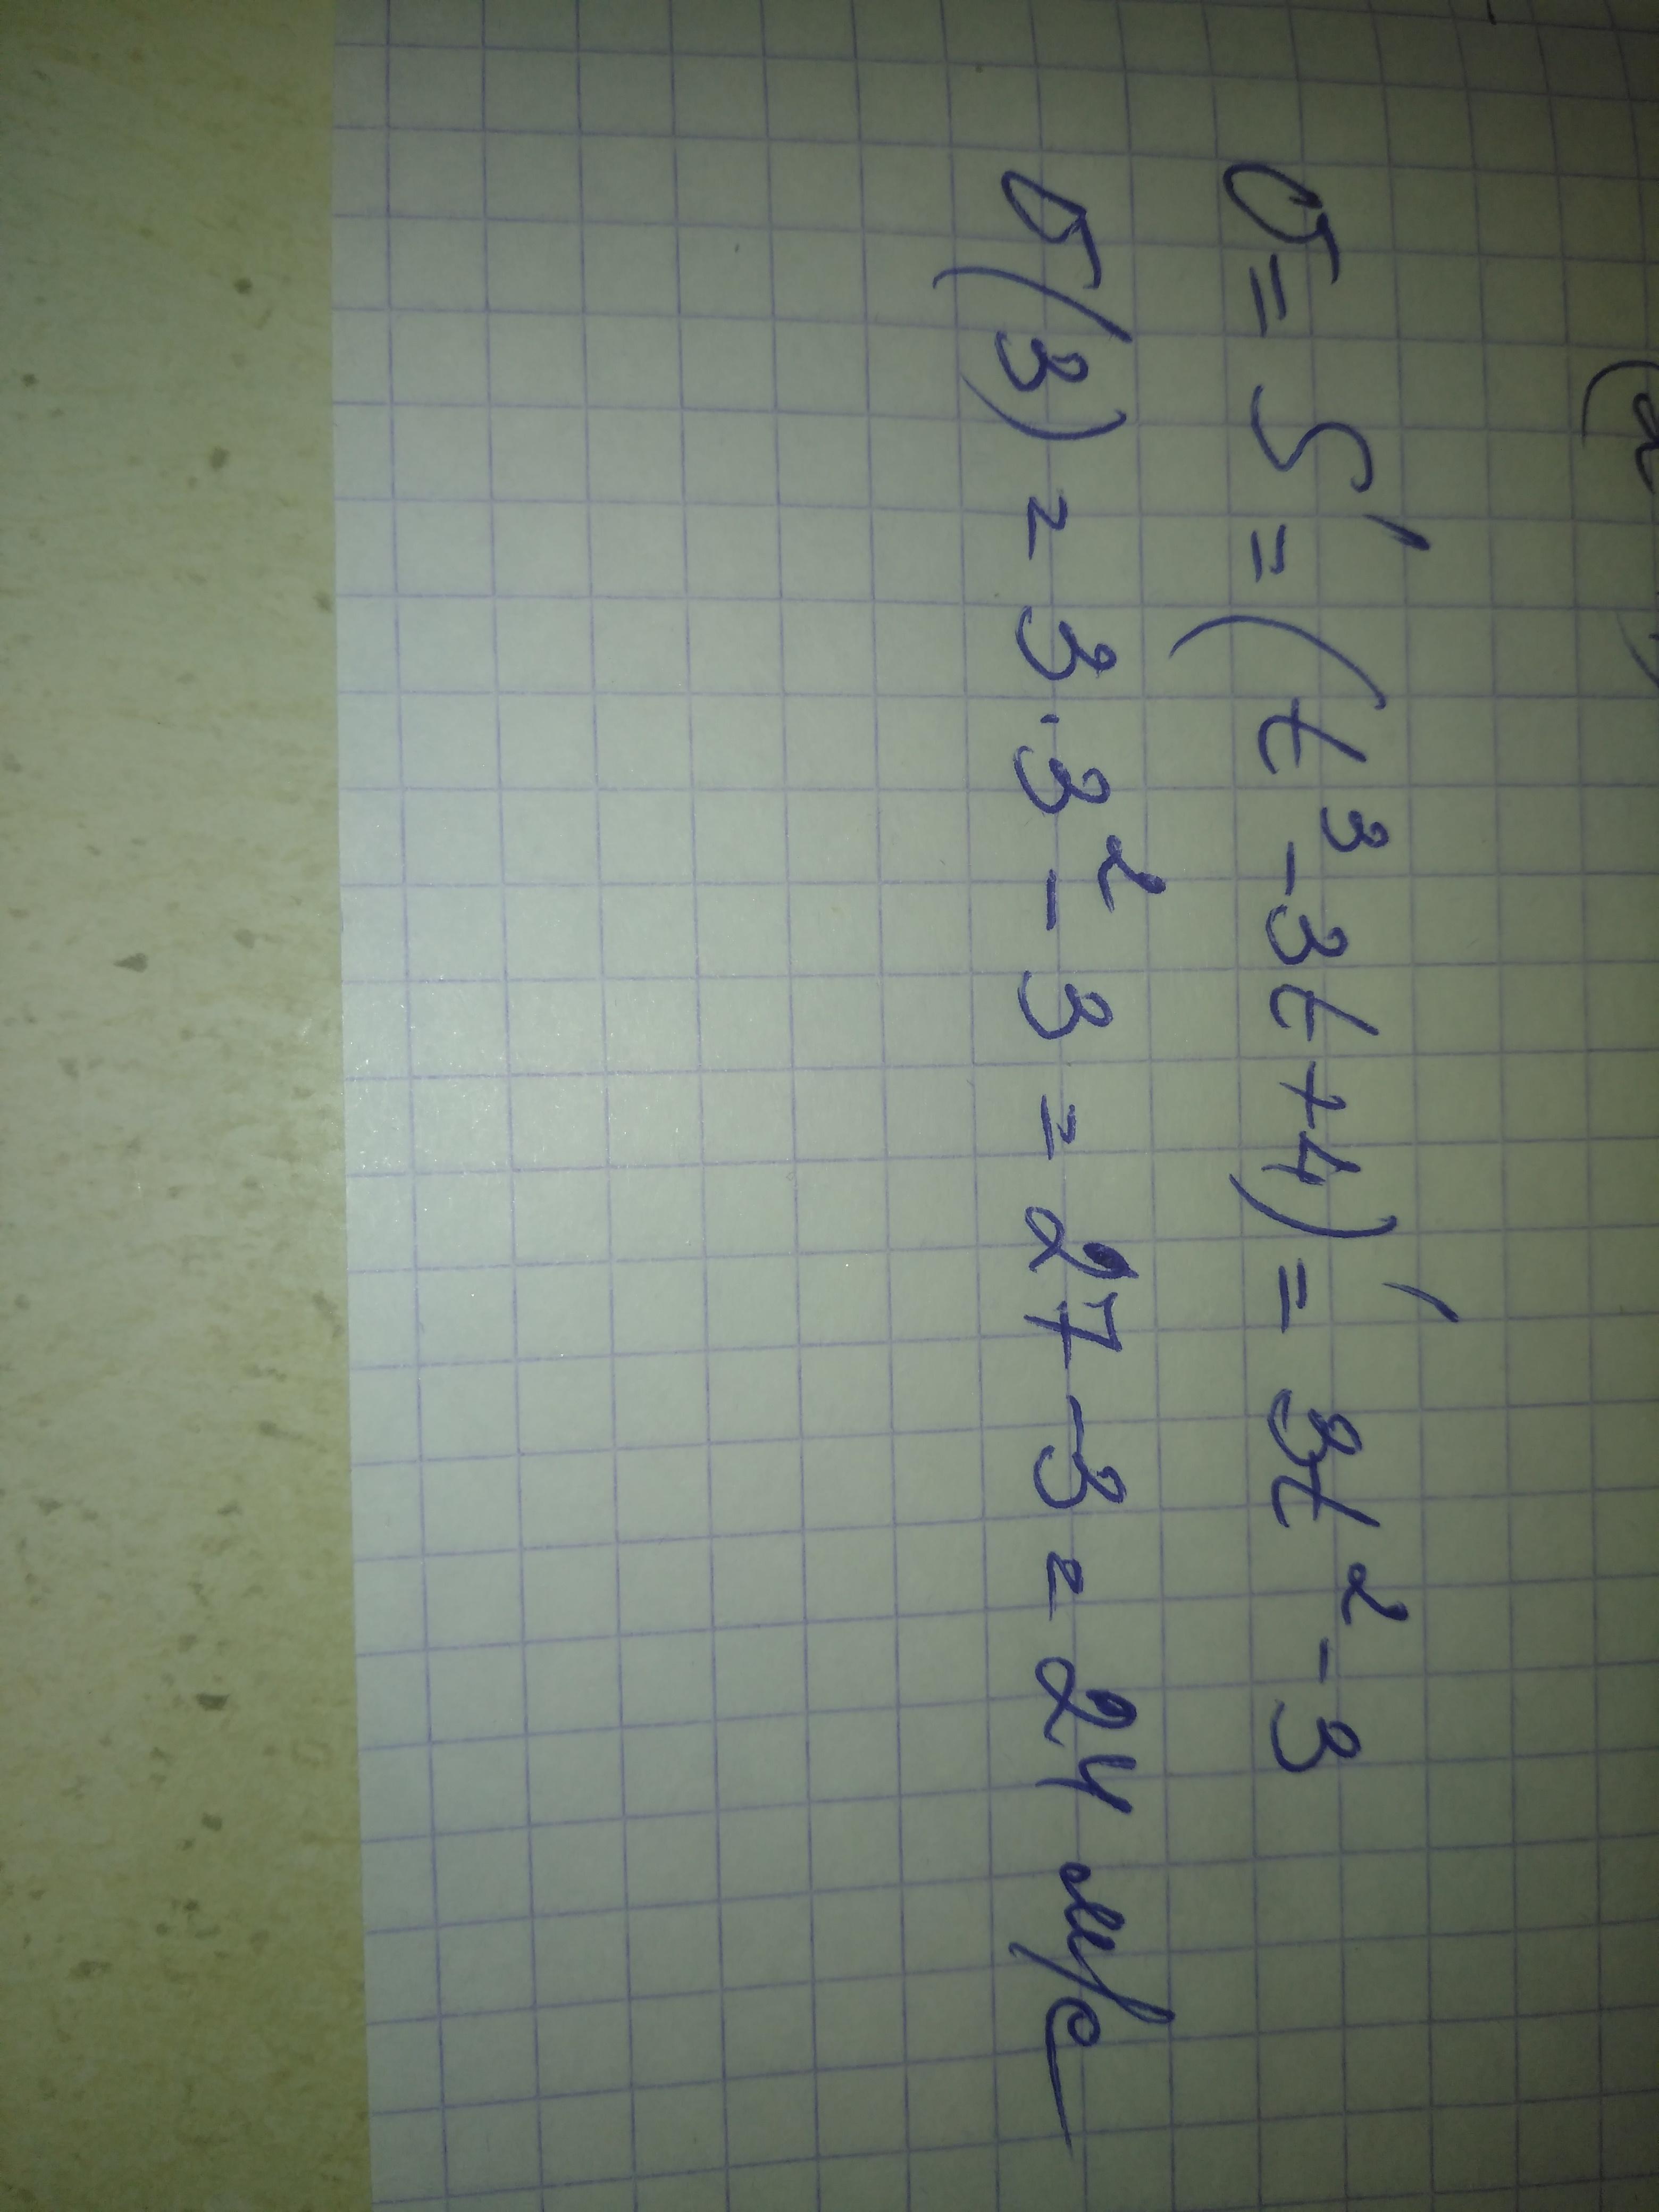 υ = S' = (t³ - 3t + 4)' = 3t² - 3
υ(3) = 3 · 3² - 3 = 27 - 3 = 24 м/с